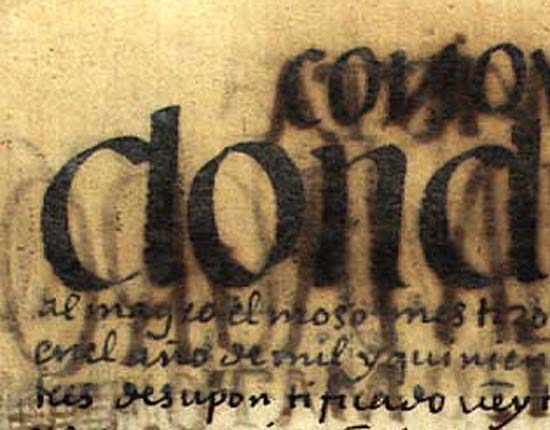 dond
almagro el moso mestizo
en el año de mil y quinien
tus desupontificado vey